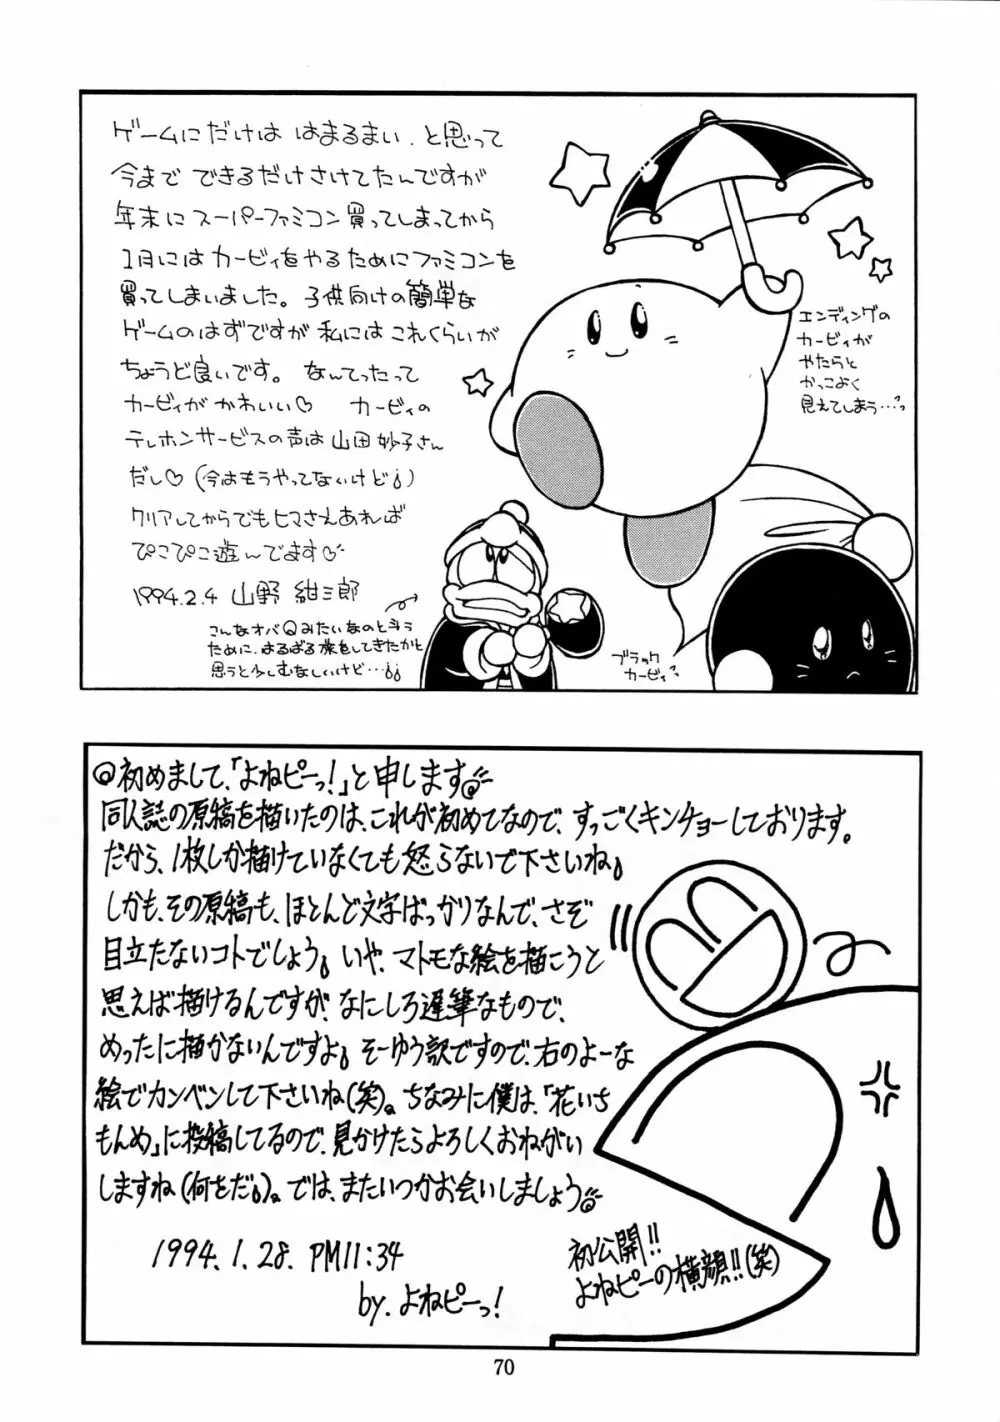 ゲームにだけは はまるまい．と思って
今まで できるだけさけてたんですが
年末に スーパーファミコン買ってしまってから
1月には カービィをやるためにファミコンを
買ってしまいました。子供向けの簡単な
ゲームのはずですが 私には これくらいが
ちょうど良いです。 なんてったって
カービィが かわいい♡ カービィの
テレホンサービスの声は 山田妙子さん
だし♡（今はもうやってないけど）
クリアしてからでも ヒマさえあれば
ぴこぴこ遊んでます♡
1994.2.4 山野 紺三郎
こんなオバQみたいなのと斗う
ために、はるばる旅をしてきたかと
思うと少しむなしいけど…
エンディングの
カービィが
やたらと
かっこよく
見えてしまう…
ブラック
カービィ
◎初めまして、「よねピーっ!」と申します
同人誌の原稿を描いたのは、これが初めてなので、すっごくキンチョーしております。
だから、1枚しか描けていなくても怒らないで下さいね
しかも、その原稿も、ほとんど文字ばっかりなんで、さぞ
目立たないコトでしょう いや、マトモな絵を描こうと
思えば描けるんですが、なにしろ遅筆なもので、
めったに描かないんですよ そーゆう訳ですので、右のよーな
絵でカンベンして下さいね(笑)。ちなみに僕は、「花いち
もんめ」に投稿してるので、見かけたらよろしくおねがい
しますね(何をだ)。では、またいつかお会いしましょう
1994.1.28. PM11:34
by. よねピーっ!
初公開!!
よねピーの横顔!!(笑)
70